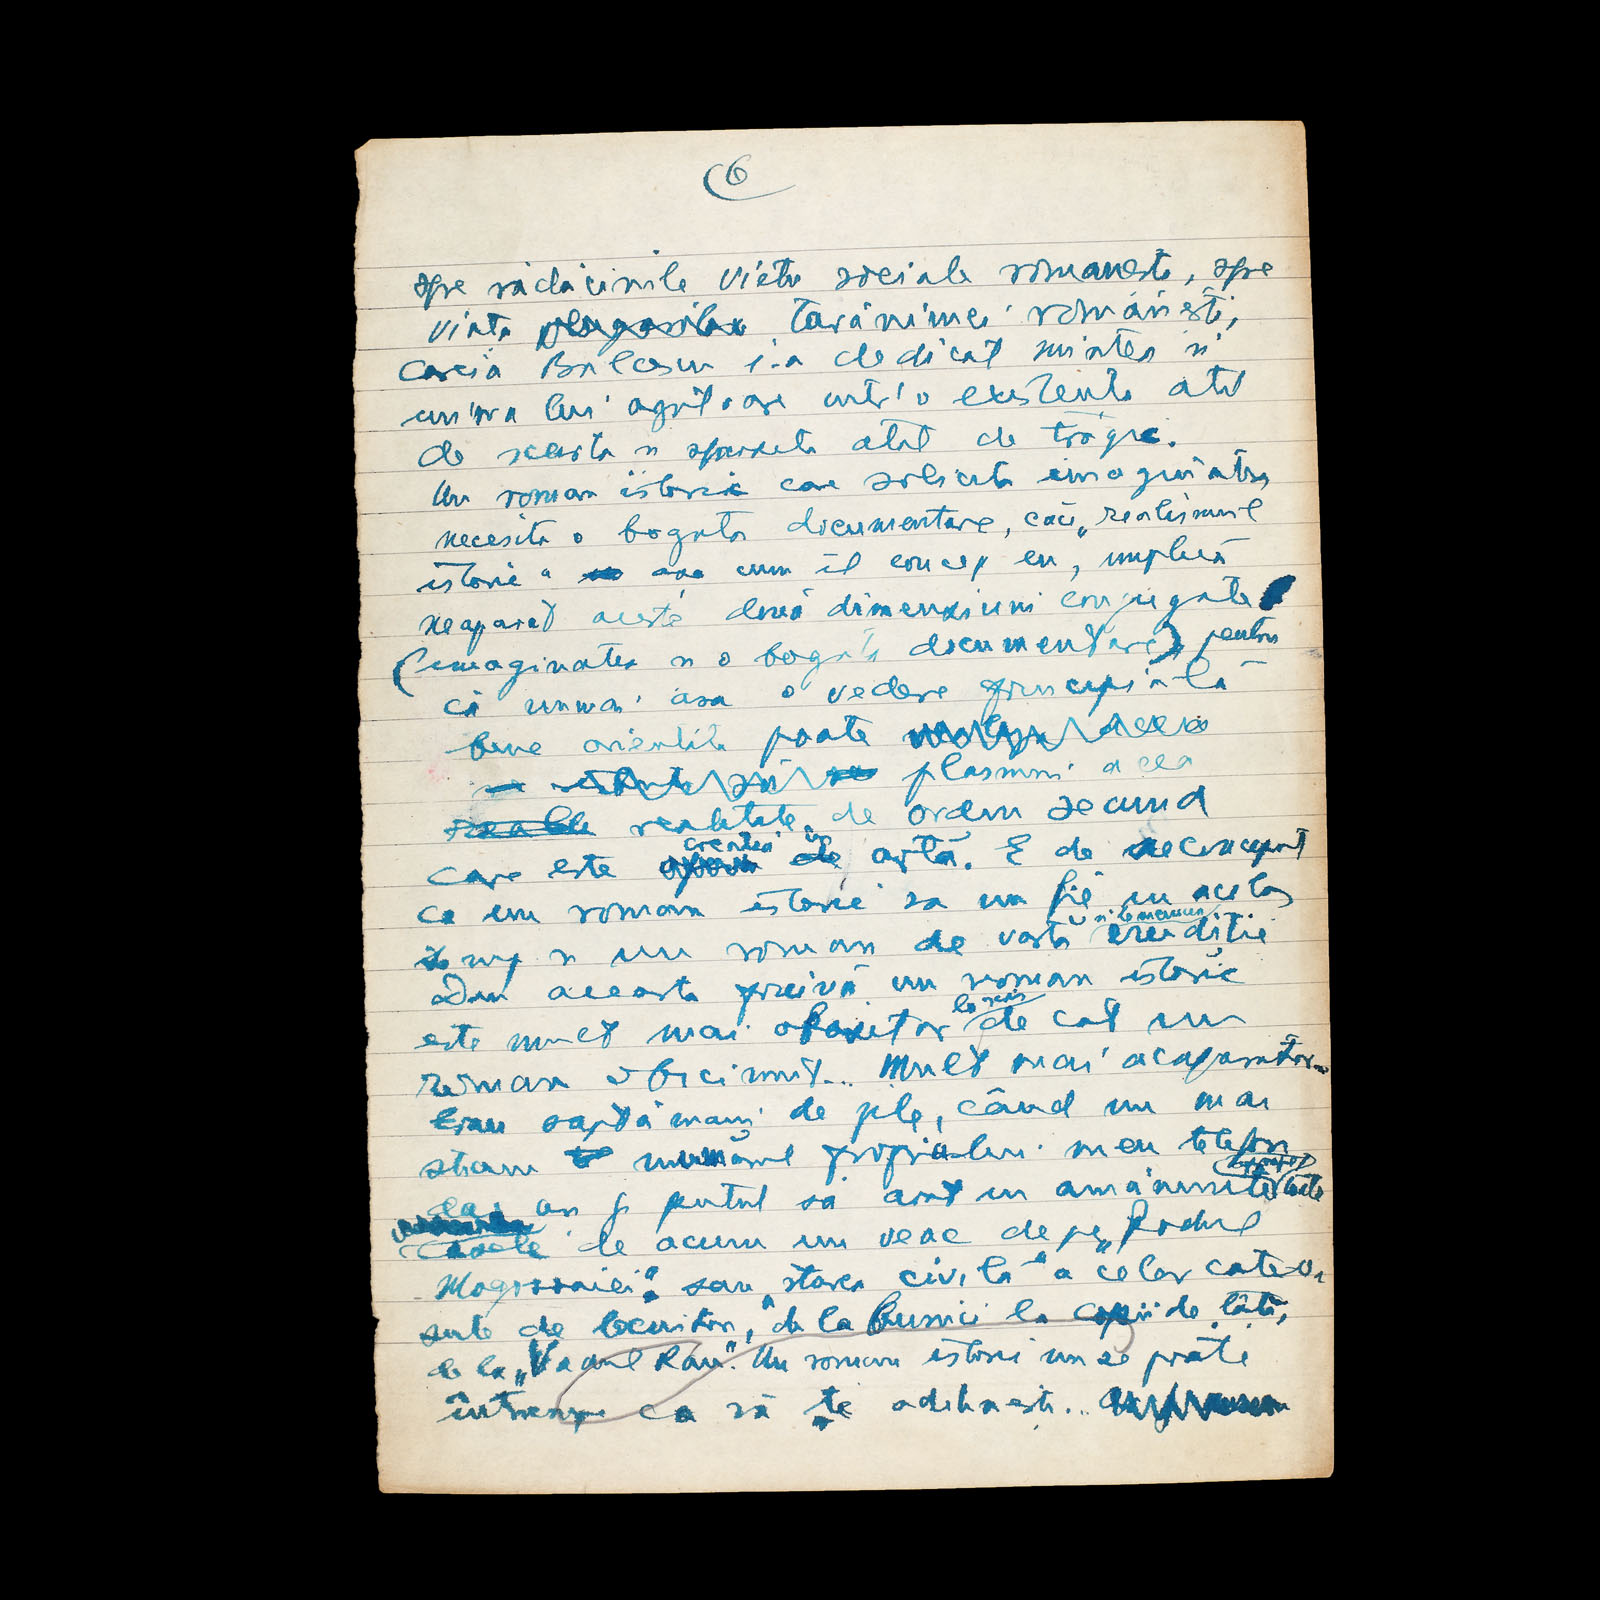 6
spre rădăcinile vieții sociale românești, spre
viața plugarilor țărănimei românești,
căreia Bălcescu i-a dedicat mintea și
inima lui agitatoare într'o existență atât
de scurtă și sfârșită atât de tragic.
Un roman istoric care solicită imaginația
necesită o bogată documentare, căci „realismul
istoric" așa cum îl concep eu, implică
neapărat aceste două dimensiuni conjugate
(imaginația și o bogată documentare) pentru
că numai așa o vedere principială
bine orientată poate
plăsmui acea
reable realitate de ordin secund
care este creația în de artă. E de neconceput
ca un roman istoric să nu fie în același
timp și un roman de vastă erudiție
Din această pricină un roman istoric
este mult mai obositor la scris de cât un
roman obicinuit... Mult mai acaparator..
Erau săptămâni de zile, când nu mai
știam numărul propriului meu telefon
dar aș fi putut să arăt în amănunte toate
casele de acum un veac de pe „Podul
Mogoșoaiei" sau „starea civilă" a celor cateva
sute de locuitori, de la bunici la copii de țâță,
de la „Vadul Rău". Un roman istoric nu se poate
întrerupe ca să te odihnești...